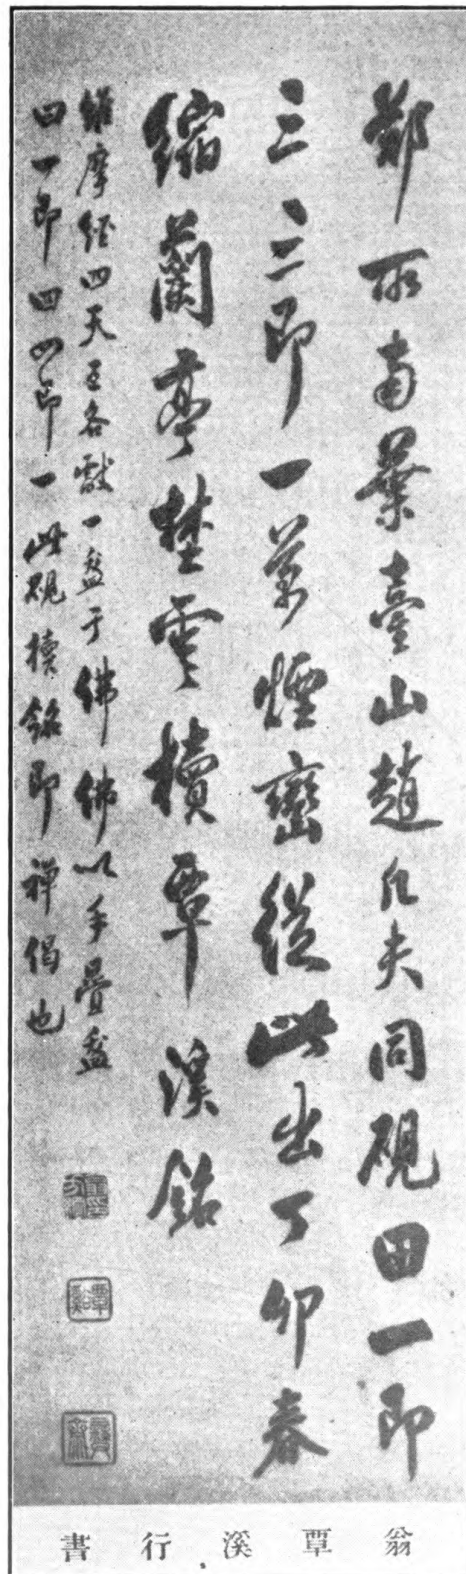 鄭所南葉臺山趙凡夫同硯田一即
三三即一萬煙巒從此出丁卯春
縮蘭亭埜雲櫝覃溪銘
維摩經四天王各獻一盋于佛佛以手疊盋
曰一即四四即一此硯櫝銘即禪偈也
翁覃溪行書